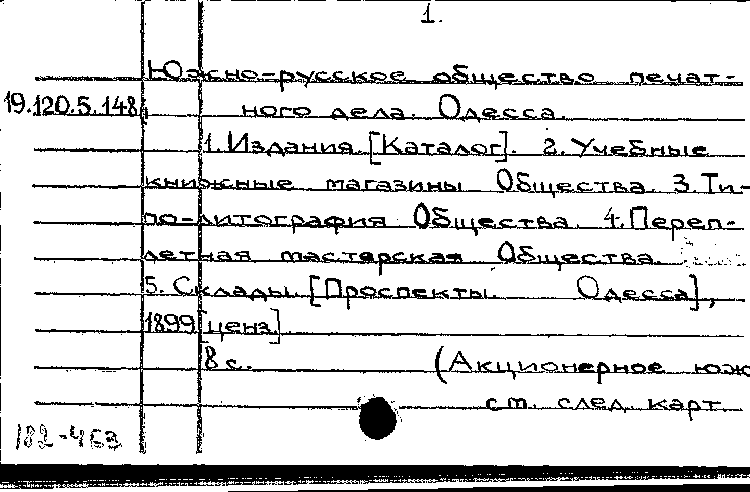 1.
Южно-русское общество печат-
19.120.5.148, ного дела. Одесса.
1. Издания. [Каталог]. 2. Учебные
книжные магазины Общества. 3. Ти-
по-литография Общества. 4. Переп-
летная мастерская Общества.
5. Склады. [Проспекты. Одесса],
1899 [ценз.]
8 с. (Акционерное юж
см. след. карт.
182-463